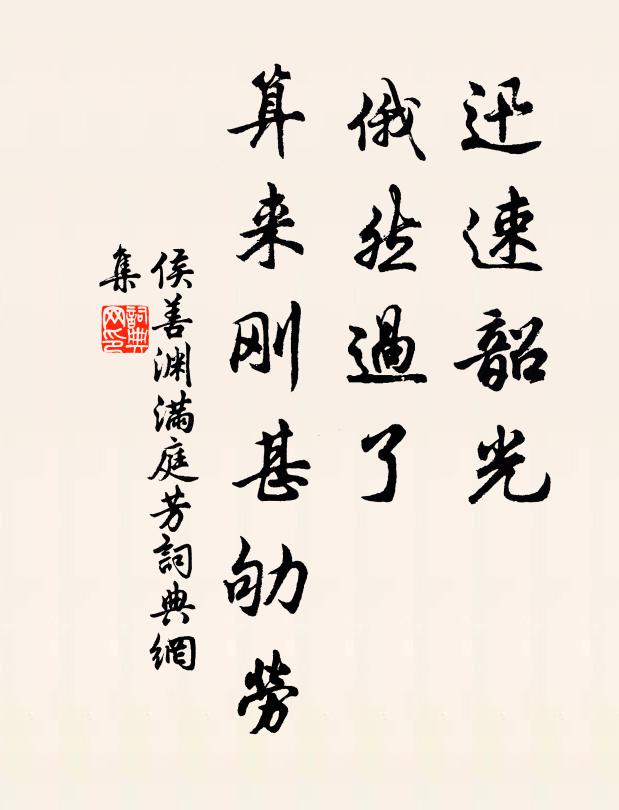 迅速韶光
俄然過了
算来刚甚劬勞
侯善渊满庭芳詞典網
集
詞典网印